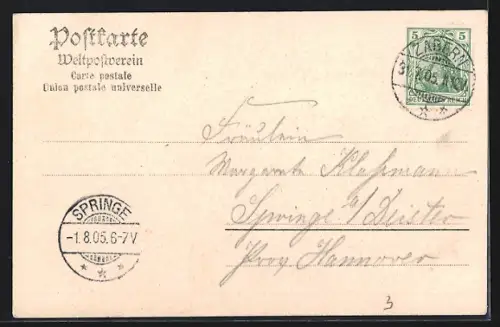 Postkarte
Weltpostverein
Carte postale
Union postale universelle
5 5
ZABERN
Fräulein
Margarete Klassmann
Springe a/Deister
Prov Hannover
SPRINGE
-1.8.05.6-7V
3